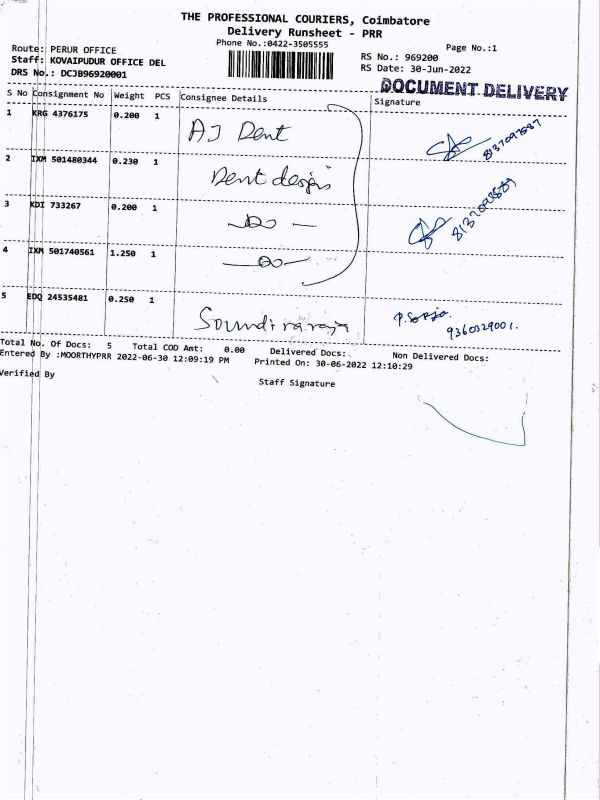 THE PROFESSIONAL COURIERS, Coimbatore
Delivery Runsheet - PRR
Phone No.:0422-3505555
Page No.:1
Route: PERUR OFFICE
RS No.: 969200
Staff: KOVAIPUDUR OFFICE DEL
RS Date: 30-Jun-2022
DRS No.: DCJB96920001
DOCUMENT DELIVERY
S No Consignment No Weight PCS Consignee Details Signature
1 KRG 4376175 0.200 1 AJ Dent
2 IXM 501480344 0.230 1 Dent design
3 KDI 733267 0.200 1 — Do —
4 IXM 501740561 1.250 1 — Do —
5 EDQ 24535481 0.250 1 Soundiraraja
9360329001.
Total No. Of Docs: 5 Total COD Amt: 0.00 Delivered Docs: Non Delivered Docs:
Entered By :MOORTHYPRR 2022-06-30 12:09:19 PM Printed On: 30-06-2022 12:10:29
Verified By
Staff Signature